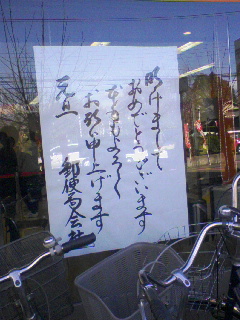 明けまして
おめでとうございます
本年もよろしく
お願い申上げます
元旦
郵便局会社